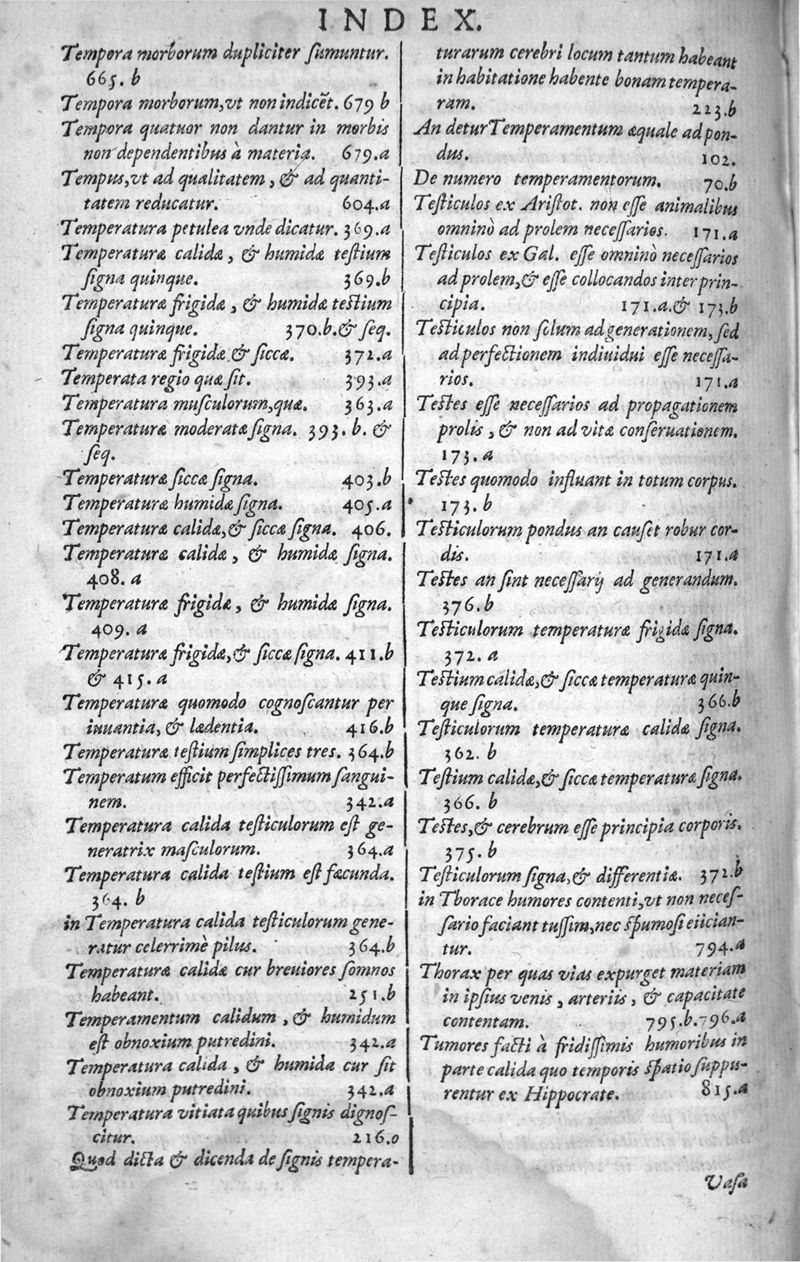 INDEX.
Tempora morborum dupliciter ſumuntur.
665. b
Tempora morborum, vt non indicẽt. 679 b
Tempora quatuor non dantur in morbis
non dependentibus à materia. 679.a
Tempus, vt ad qualitatem, & ad quanti-
tatem reducatur. 604.a
Temperatura petulca vnde dicatur. 369.a
Temperaturæ calidæ, & humidæ teſtium
ſigna quinque. 369.b
Temperaturæ frigidæ, & humidæ teſtium
ſigna quinque. 370.b.& ſeq.
Temperaturæ frigidæ & ſiccæ. 372.a
Temperata regio quæ ſit. 393.a
Temperatura muſculorum, quæ. 363.a
Temperaturæ moderatæ ſigna. 393. b. &
ſeq.
Temperaturæ ſiccæ ſigna. 403.b
Temperaturæ humidæ ſigna. 405.a
Temperaturæ calidæ, & ſiccæ ſigna. 406.
Temperaturæ calidæ, & humidæ ſigna.
408. a
Temperaturæ frigidæ, & humidæ ſigna.
409. a
Temperaturæ frigidæ, & ſiccæ ſigna. 411.b
& 415. a
Temperaturæ quomodo cognoſcantur per
iuuantia, & lædentia. 416.b
Temperaturæ teſtium ſimplices tres. 364.b
Temperatum efficit perfectiſſimum ſangui-
nem. 342.a
Temperatura calida teſticulorum eſt ge-
neratrix maſculorum. 364.a
Temperatura calida teſtium eſt fæcunda.
364. b
in Temperatura calida teſticulorum gene-
ratur celerrimè pilus. 364.b
Temperaturæ calidæ cur breuiores ſomnos
habeant. 251.b
Temperamentum calidum, & humidum
eſt obnoxium putredini. 342.a
Temperatura calida, & humida cur ſit
obnoxium putredini. 342.a
Temperatura vitiata quibus ſignis dignoſ-
citur. 216.o
Quod dicta & dicenda de ſignis tempera-
turarum cerebri locum tantum habeant
in habitatione habente bonam tempera-
ram. 223.b
An detur Temperamentum æquale ad pon-
dus. 102.
De numero temperamentorum. 70.b
Teſticulos ex Ariſtot. non eſſe animalibus
omninò ad prolem neceſſarios. 171.a
Teſticulos ex Gal. eſſe omninò neceſſarios
ad prolem, & eſſe collocandos inter prin-
cipia. 171.a.& 173.b
Teſticulos non ſolum ad generationem, ſed
ad perfectionem indiuidui eſſe neceſſa-
rios. 171.a
Teſtes eſſe neceſſarios ad propagationem
prolis, & non ad vitæ conſeruationem.
173. a
Teſtes quomodo influant in totum corpus.
173. b
Teſticulorum pondus an cauſet robur cor-
dis. 171.a
Teſtes an ſint neceſſarij ad generandum.
376. b
Teſticulorum temperaturæ frigidæ ſigna.
372. a
Teſtium calidæ, & ſiccæ temperaturæ quin-
que ſigna. 366.b
Teſticulorum temperaturæ calidæ ſigna.
362. b
Teſtium calidæ, & ſiccæ temperaturæ ſigna.
366. b
Teſtes, & cerebrum eſſe principia corporis.
375. b
Teſticulorum ſigna, & differentiæ. 372.b
in Thorace humores contenti, vt non neceſ-
ſario faciant tuſſim, nec ſpumoſi eiician-
tur. 794.a
Thorax per quas vias expurget materiam
in ipſius venis, arteriis, & capacitate
contentam. 795.b.796.a
Tumores facti à fridiſſimis humoribus in
parte calida quo temporis ſpatio ſuppu-
rentur ex Hippocrate. 815.a
Vaſa